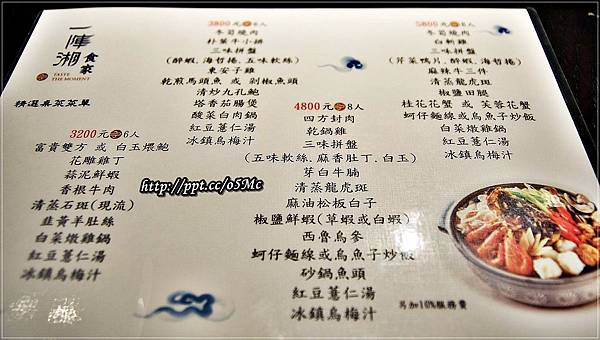 一陣湘
食家
TASTE
THE MOMENT
精選桌菜菜單
3200元 6人
富貴雙方 或 白玉煨鮑
花雕雞丁
蒜泥鮮蝦
香根牛肉
清蒸石斑(現流)
韭黃羊肚絲
白菜燉雞鍋
紅豆薏仁湯
冰鎮烏梅汁
3800元 6人
冬筍燒肉
朴葉牛小排
三味拼盤
(醉蝦,海哲捲,五味軟絲)
東安子雞
乾煎馬頭魚 或 剁椒魚頭
清炒九孔鮑
塔香茄腸煲
酸菜白肉鍋
紅豆薏仁湯
冰鎮烏梅汁
4800元 8人
四方封肉
乾鍋雞
三味拼盤
(五味軟絲.麻香肚丁.白玉)
芽白牛腩
清蒸龍虎斑
麻油松板白子
椒鹽鮮蝦(草蝦或白蝦)
西魯烏參
蚵仔麵線或烏魚子炒飯
砂鍋魚頭
紅豆薏仁湯
冰鎮烏梅汁
5800元 8人
冬筍燒肉
白斬雞
三味拼盤
(芹菜鴨片,醉蝦,海哲捲)
麻辣牛三件
清蒸龍虎斑
椒鹽田腿
桂花花蟹 或 芙蓉花蟹
蚵仔麵線或烏魚子炒飯
白菜燉雞鍋
紅豆薏仁湯
冰鎮烏梅汁
另加10%服務費
http://ppt.cc/o5Mc